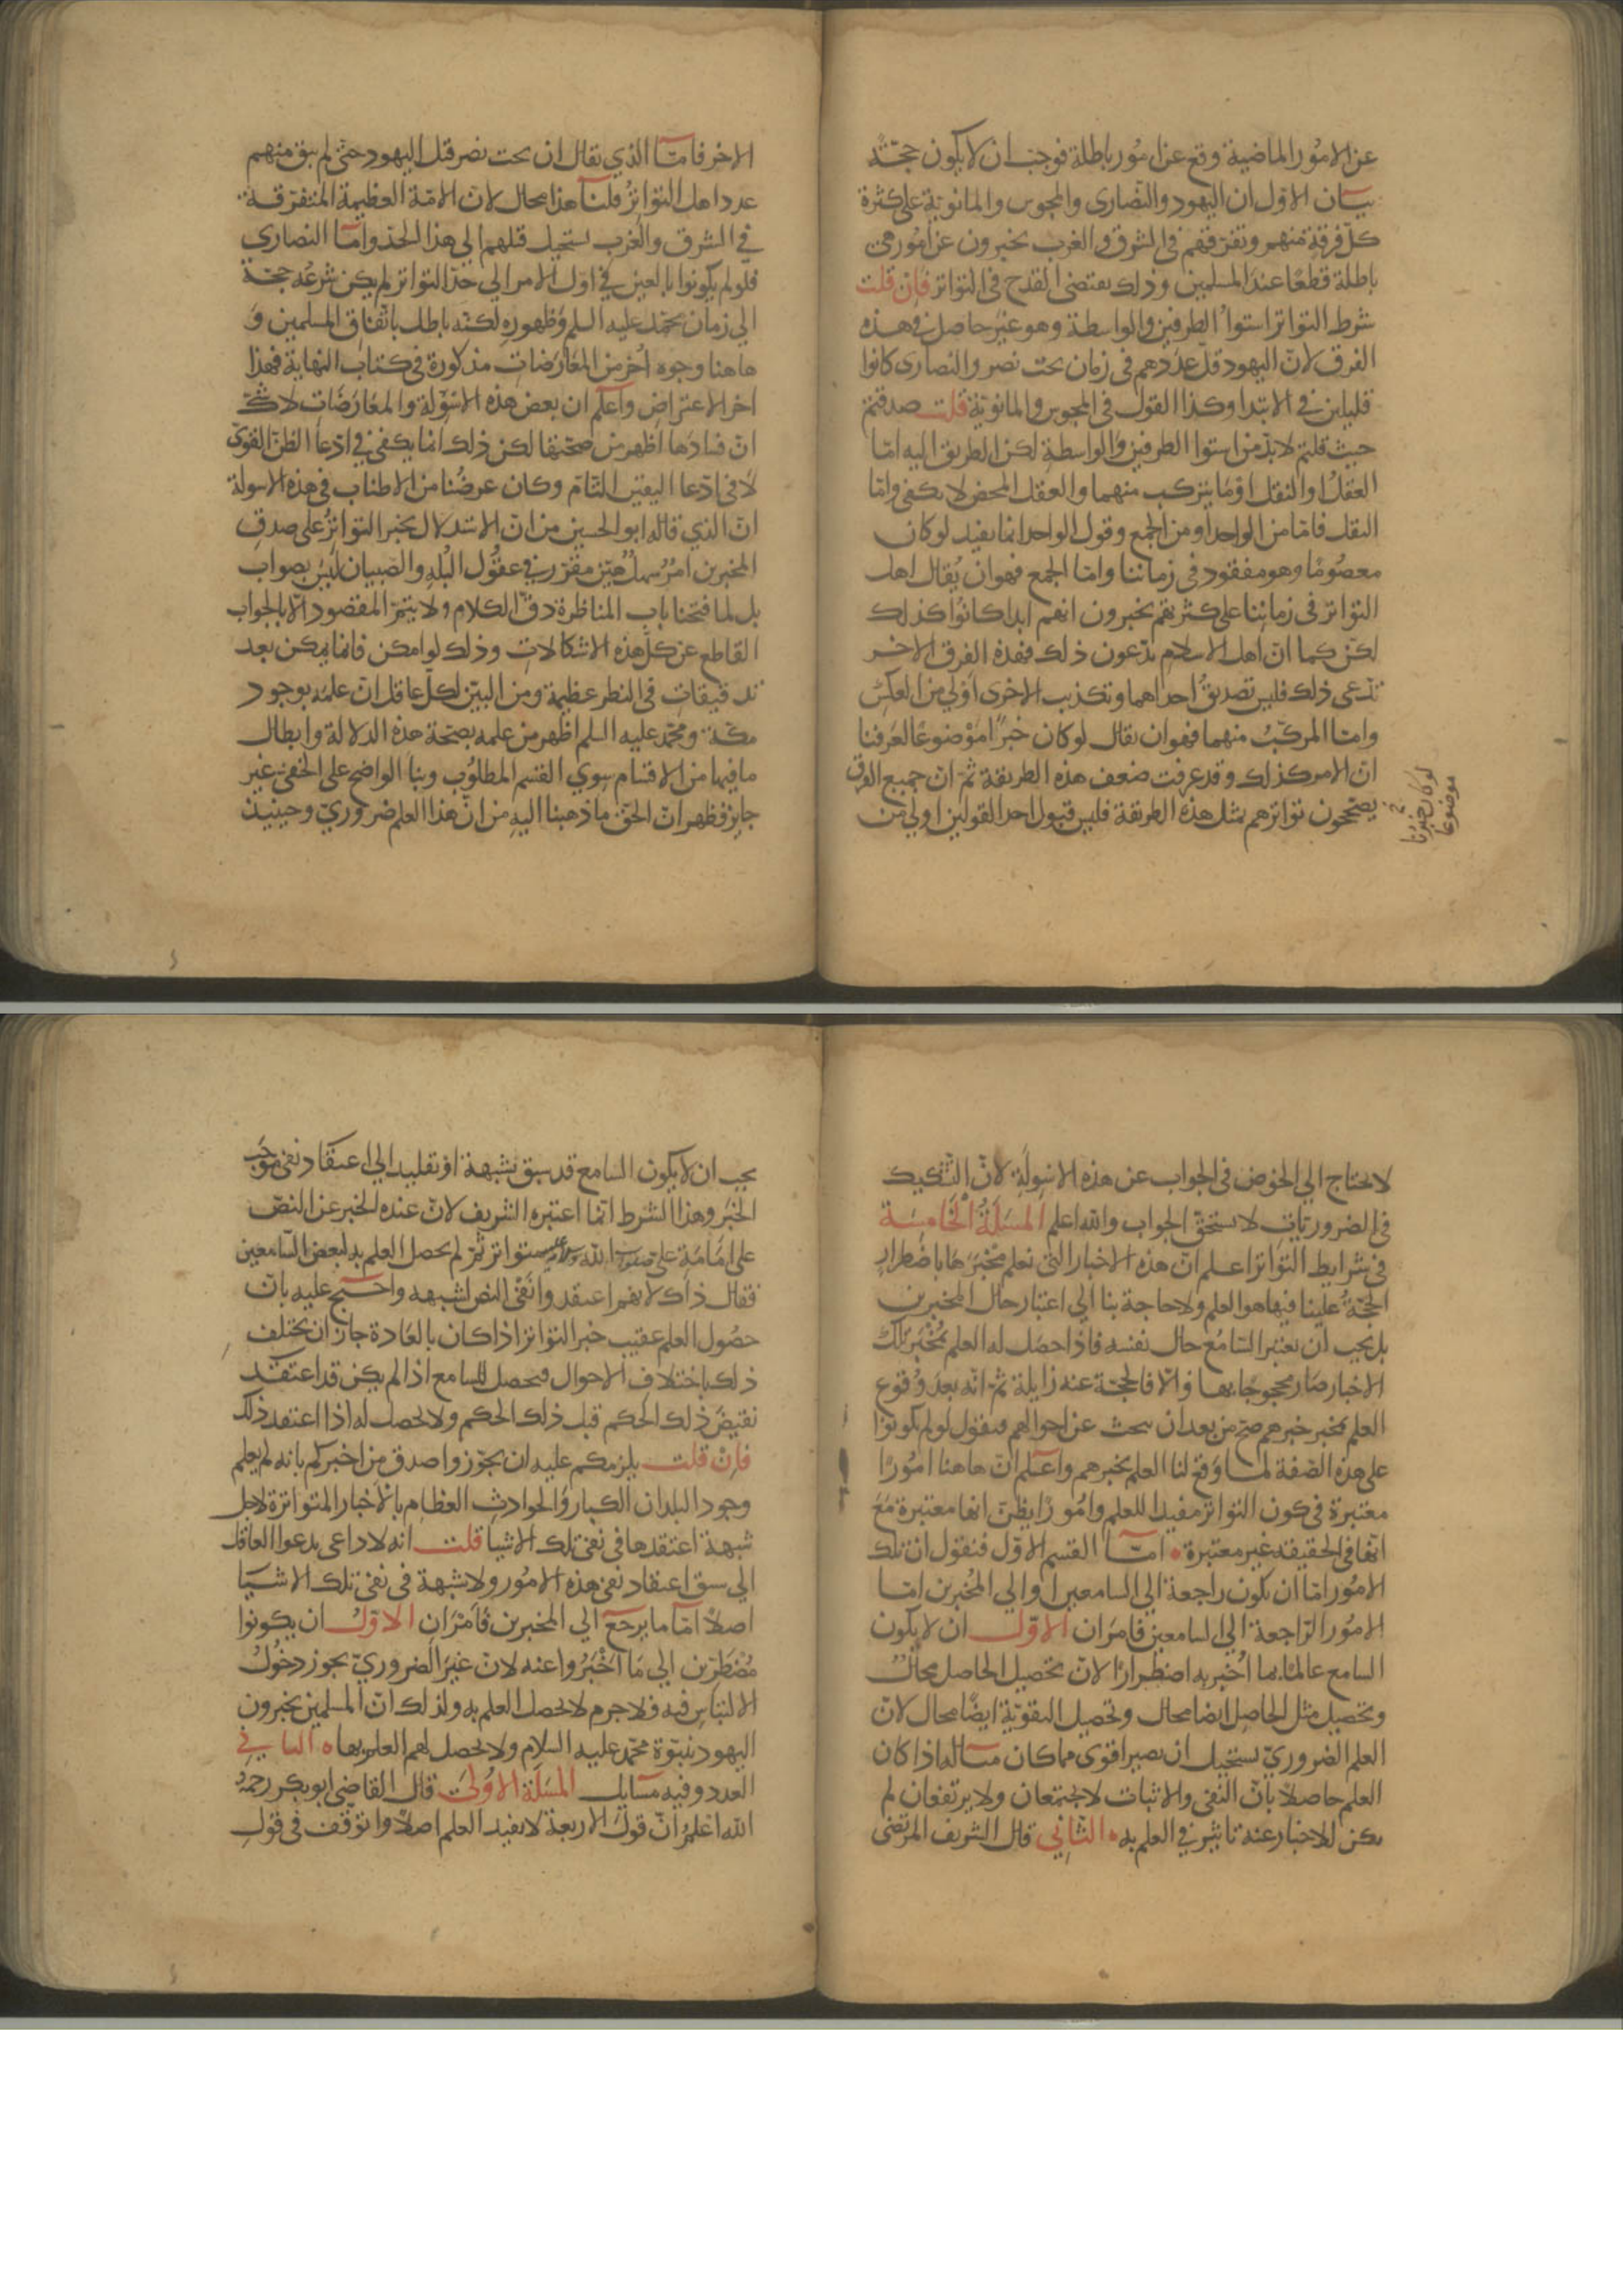 عن الامور الماضية وقع عن امور باطلة فوجب ان لا يكون حجّة
بيان الاوّل ان اليهود والنّصارى والمجوس والمانويّة على كثرة
كلّ فرقة منهم وتفرّقهم في الشرق والغرب يخبرون عن امور هى
باطلة قطعًا عند المسلمين وذلك يقتضى القدح فى التواتر فإن قلت
شرط التواتر استواء الطرفين والواسطة وهو غير حاصل في هذه
الفرق لانّ اليهود قلّ عددهم فى زمان بخت نصر والنصارى كانوا
قليلين في الابتدا وكذا القول فى المجوس والمانويّة قلت صدقتم
حيث قلتم لا بدّ من استوا الطرفين والواسطة لكن الطريق اليه امّا
العقل او النقل او ما يتركب منهما والعقل المحض لا يكفى وامّا
النقل فامّا من الواحد او من الجمع وقول الواحد انما يفيد لو كان
معصومًا وهو مفقود في زماننا وامّا الجمع فهو ان يُقال اهل
التواتر فى زماننا على كثرتهم يخبرون انهم ابدا كانوا كذلك
لكن كما انّ اهل الاسلام يدّعون ذلك فهذه الفرق الاخر
تدّعى ذلك فليس تصديق احداهما وتكذيب الاخرى اولى من العكس
وامّا المركّب منهما فهو ان يقال لو كان خبرًا موضوعًا لعرفنا
انّ الامر كذلك وقد عرفت ضعف هذه الطريقة ثمّ انّ جميع الفرق
يصحّحون تواترهم بمثل هذه الطريقة فليس قبول احد القولين اولى من
لو كان خبرنا
موضوعا
الاخر فامّا الذي يقال ان بخت نصر قتل اليهود حتى لم يبق منهم
عدد اهل التواتر قلنا هذا محال لانّ الامّة العظيمة المتفرّقة
في الشرق والغرب يستحيل قتلهم الى هذا الحدّ وامّا النصارى
فلو لم يكونوا بالغين في اوّل الامر الي حدّ التواتر لم يكن شرعه حجّة
الي زمان محمّد عليه السلم وظهوره لكنّه باطل باتّفاق المسلمين و
هاهنا وجوه اُخر من المعارضات مذكورة فى كتاب النهاية فهذا
اخر الاعتراض واعلم ان بعض هذه الاسولة والمعارضات لا شكّ
انّ فسادها اظهر من صحّتها لكن ذلك انما يكفى في ادّعا الظنّ القوىّ
لا فى ادّعا اليقين التّام وكان غرضنا من الاطناب فى هذه الاسولة
انّ الذي قاله ابو الحسين من انّ الاستدلال بخبر التواتر على صدق
المخبرين امر سهل هيّن مقرّر في عقول البُله والصّبيان ليس بصواب
بل لما فتحنا باب المناظرة دقّ الكلام ولا يتمّ المقصود الّا بالجواب
القاطع عن كلّ هذه الاشكالات وذلك لو امكن فانما يمكن بعد
تدقيقات فى النظر عظيمة ومن البيّن لكلّ عاقل انّ علمه بوجود
مكّة ومحمّد عليه السلم اظهر من علمه بصحّة هذه الدلالة وابطال
ما فيها من الاقسام سوي القسم المطلوب وبنا الواضح على الخفى غير
جايز فظهر انّ الحقّ ما ذهبنا اليه من انّ هذا العلم ضروريّ وحينيذ
لا يحتاج الي الخوض فى الجواب عن هذه الاسولة لانّ التشكيك
فى الضروريّات لا يستحقّ الجواب والله اعلم المسئلة الخامسة
في شرايط التواتر اعلم انّ هذه الاخبار التى نعلم مخبَرها باضطرار
الحجّة علينا فيها هو العلم ولا حاجة بنا الي اعتبار حال المخبرين
بل يجب ان يعتبر السّامع حال نفسه فاذا حصل له العلم بمخبَر تلك
الاخبار صار محجوجًا بها والّا فالحجّة عنه زايلة ثمّ انّه بعد وقوع
العلم بمخبر خبرهم صحّ من بعد ان يبحث عن احوالهم فيقول لو لم يكونوا
على هذه الصّفة لما وقع لنا العلم بخبرهم واعلم انّ هاهنا امورًا
معتبرة فى كون التواتر مفيدا للعلم وامورًا يظنّ انها معتبرة مع
انّها فى الحقيقه غير معتبرة امّا القسم الاوّل فنقول ان تلك
الامور امّا ان يكون راجعة الي السامعين او الي المُخبرين امّا
الامور الرّاجعة الي السامعين فامران الاوّل ان لا يكون
السامع عالمًا بما اُخبر به اضطرارًا لانّ تحصيل الحاصل محال
وتحصيل مثل الحاصل ايضا محال وتحصيل التقويّة ايضًا محال لانّ
العلم الضروريّ يستحيل ان يصير اقوى مما كان مثاله اذا كان
العلم حاصلا بانّ النفى والاثبات لا يجتمعان ولا يرتفعان لم
يكن للاخبار عنه تاثير في العلم به الثاني قال الشريف المرتضى
يجب ان لا يكون السامع قد سبق بشبهة او تقليد الي اعتقاد نفى موجب
الخبر وهذا الشرط انّما اعتبره الشريف لانّ عنده الخبر عن النصّ
على امامة على متواتر ثمّ لم يحصل العلم به لبعض السّامعين
فقال ذاك لانهم اعتقدوا نفى النص لشبهه واحتج عليه بانّ
حصول العلم عقيب خبر التواتر اذا كان بالعادة جاز ان يختلف
ذلك باختلاف الاحوال فيحصل للسامع اذا لم يكن قد اعتقد
نقيض ذلك الحكم قبل ذلك الحكم ولا يحصل له اذا اعتقد ذلك
فإن قلت يلزمكم عليه ان يجوّزوا صدق من اخبركم بانه لم يعلم
وجود البلدان الكبار والحوادث العظام بالاخبار المتواترة لاجل
شبهة اعتقدها فى نفى تلك الاشيا قلت انه لا داعى يدعوا العاقل
الي سبق اعتقاد نفى هذه الامور ولا شبهة فى نفى تلك الاشيا
اصلا امّا ما يرجع الي المخبرين فامران الاوّل ان يكونوا
مضطرّين الي ما اخبروا عنه لانّ غير الضروريّ يجوز دخول
الالتباس فيه فلا جرم لا يحصل العلم به ولذلك انّ المسلمين يخبرون
اليهود بنبوّة محمّد عليه السلام ولا يحصل لهم العلم بها الثاني
العدد وفيه مسائل المسئلة الاولى قال القاضى ابو بكر رحمه
الله اعلم انّ قول الاربعة لا يفيد العلم اصلا واتوقّف فى قول